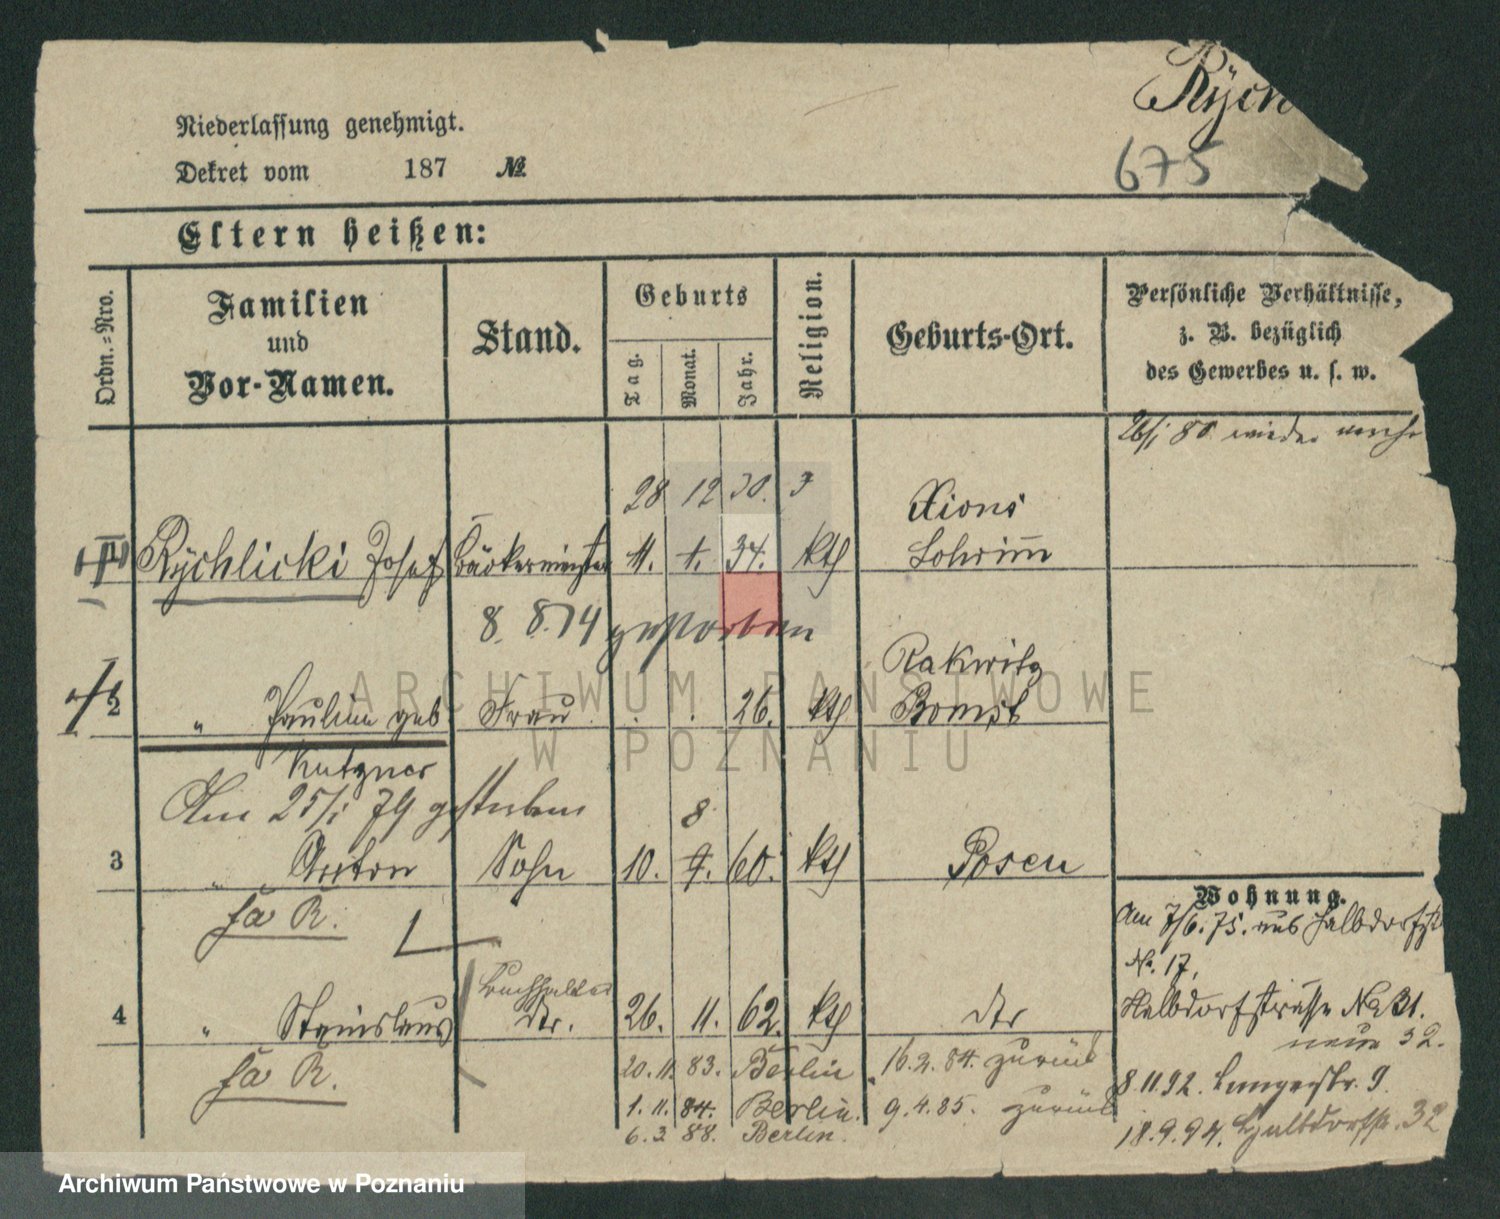 Rÿch
675
Niederlassung genehmigt.
Dekret vom 187 №
Eltern heißen:
Ordn.=Nro.
Familien und Vor-Namen.
Stand.
Geburts
Tag.
Monat.
Jahr.
Religion.
Geburts-Ort.
Persönliche Verhältnisse,
z. B. bezüglich
des Gewerbes u. s. w.
26/1 80 wieder
28 12 30. Xions
1 Rÿchlicki Josef Bäckermeister 11. 1. 34. kth Schrimm
8. 8. 94 gestorben
Rakwitz
2 " Pauline geb Frau 26. kth Bomst
Kutzner
Am 25/1 79 gestorben
8
3 " Anton Sohn 10. 7. 60. kth Posen
fa R.
Wohnung.
Am 7/6. 75. Halbdorfst
No. 17,
Buchhalter
4 " Stanislaus dto. 26. 11. 62. kth dto
Halbdorfstrasse No 31.
neue 32.
fa R.
20. 11. 83. Berlin 16. 2. 84. zurück
8. 11. 92. Langestr. 9.
1. 11. 84. Berlin. 9. 4. 85. zurück
6. 3 88. Berlin.
18. 9. 94. Halbdorfstr. 32
ARCHIWUM PAŃSTWOWE
W POZNANIU
Archiwum Państwowe w Poznaniu